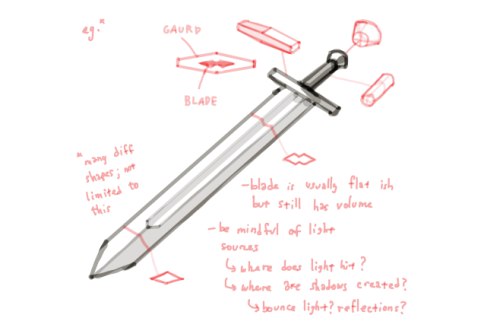 eg."
GAURD
BLADE
"many diff
shapes; not
limited to
this
-blade is usually flat ish
but still has volume
-be mindful of light
sources
↳ where does light hit?
↳ where are shadows created?
↳ bounce light? reflections?